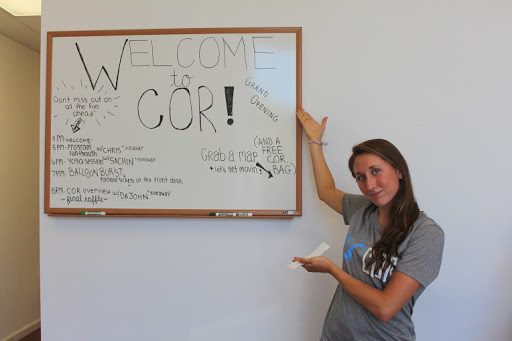 WELCOME
to
COR!
GRAND
OPENING
Don't miss out on
all the fun
ahead!
PM WELCOME!
5 PM - PROGRAM w/ CHRIS * GIVEAWAY
6 PM - YOGA SESSION w/ SACHIN * GIVEAWAY
7 PM - BALLOON BURST
them at the front desk.
8 PM COR OVERVIEW w/ DR JOHN * GIVEAWAY
~ final raffle ~
Grab a map
+ let's get movin'!
(AND A
FREE
COR
BAG)